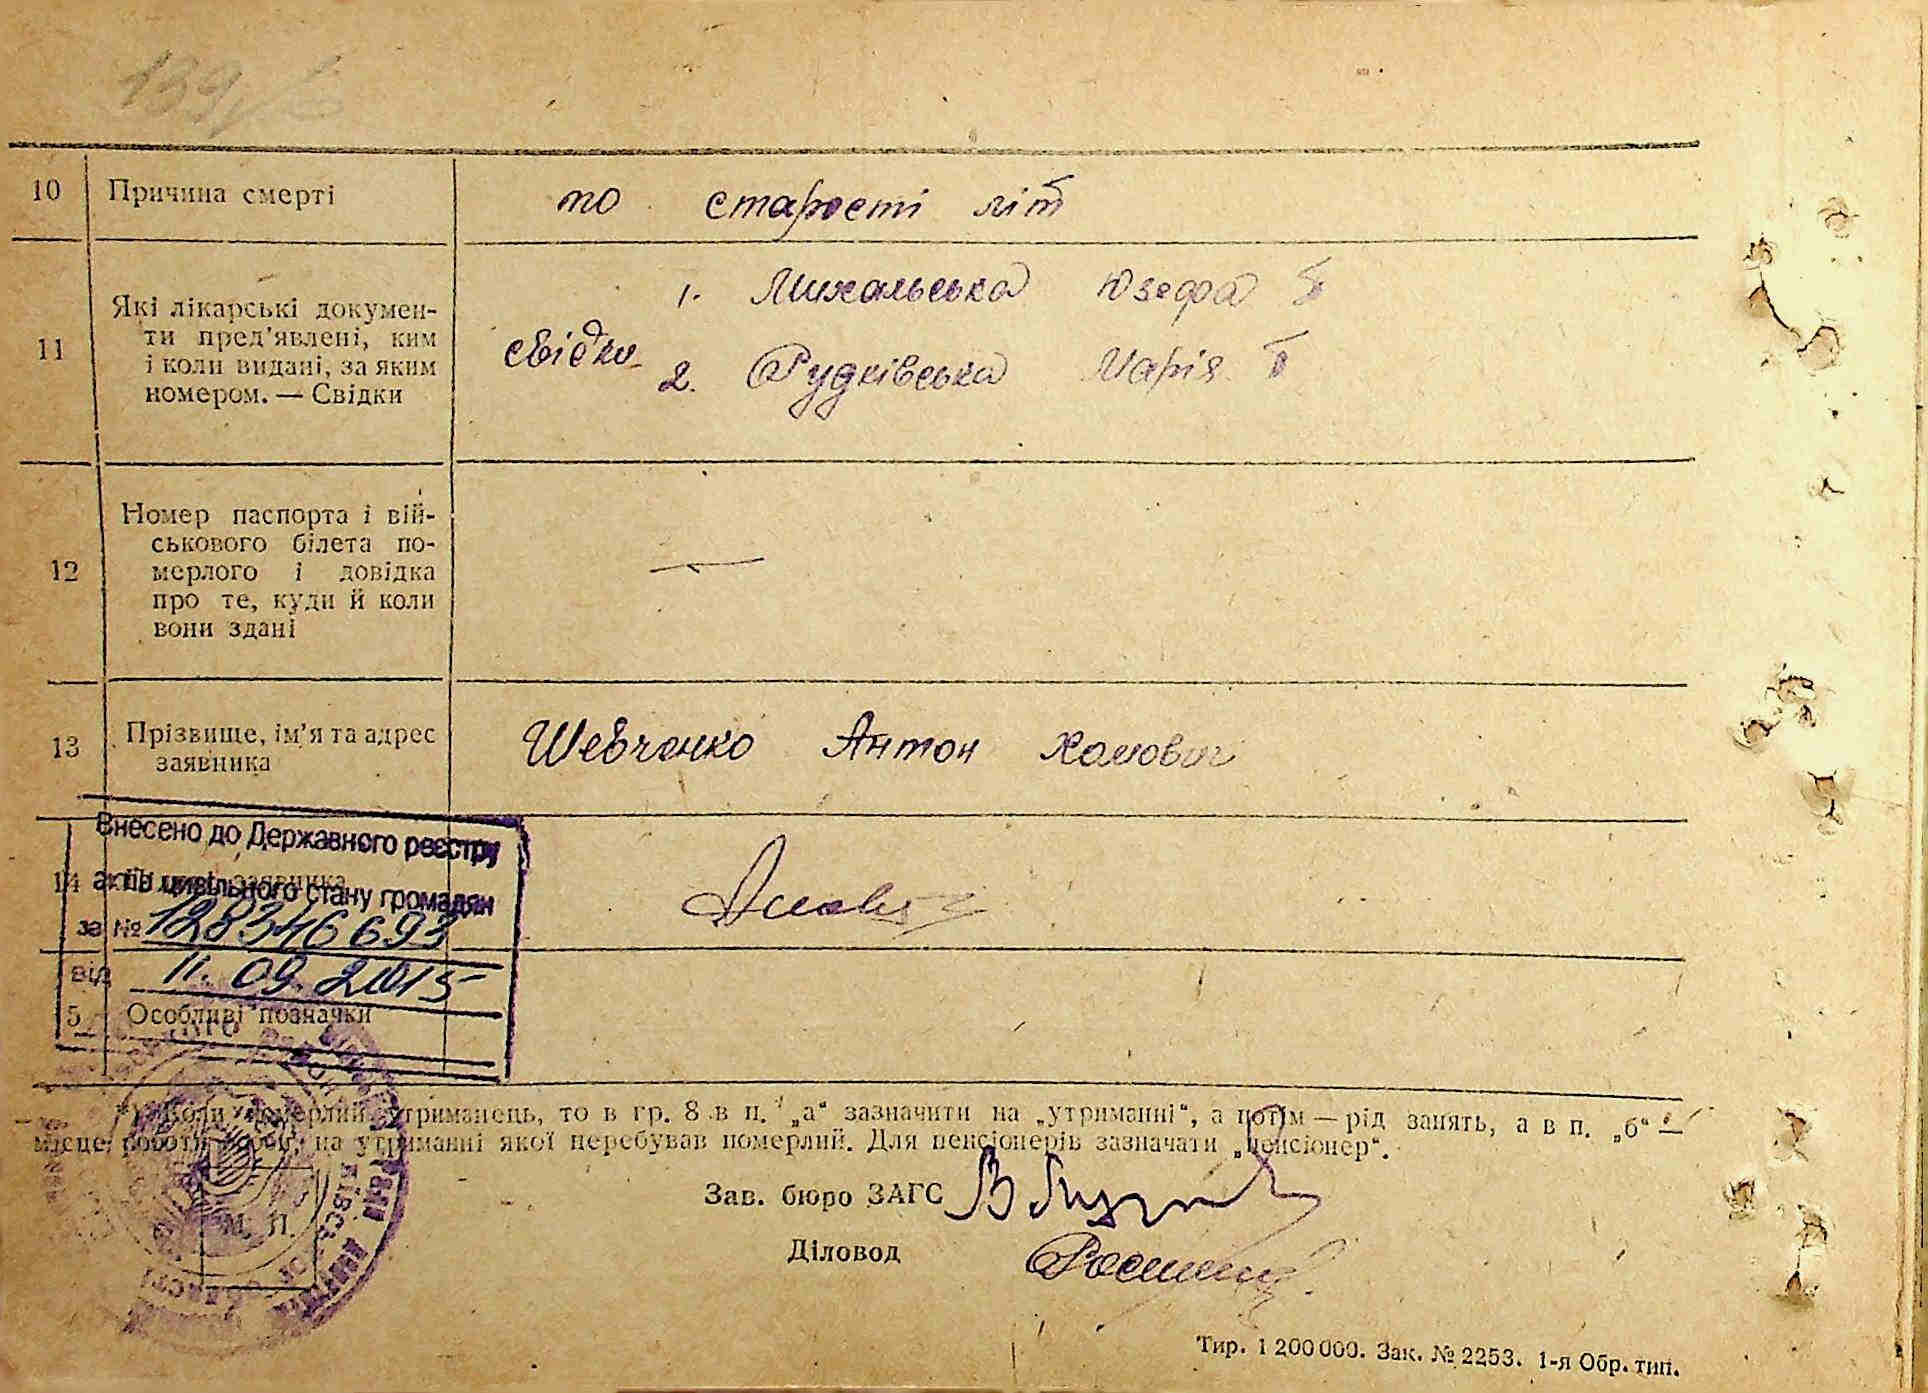 139
10 Причина смерті
по старості літ
11 Які лікарські докумен-
ти пред'явлені, ким
і коли видані, за яким
номером. — Свідки
свідки
1. Михальська Юзефа
2. Рудківська Марія
12 Номер паспорта і вій-
ськового білета по-
мерлого і довідка
про те, куди й коли
вони здані
—
13 Прізвище, ім'я та адрес
заявника
Шевченко Антон Хомович
Внесено до Державного реєстру
14 заявника
актів цивільного стану громадян
за № 128346693
від 11.09.2015
5 Особливі позначки
*) Коли померлий утриманець, то в гр. 8 в п. „а“ зазначити на „утриманні“, а потім — рід занять, а в п. „б“ —
місце роботи особи, на утриманні якої перебував померлий. Для пенсіонерів зазначати „пенсіонер“.
Зав. бюро ЗАГС
М. П.
Діловод
Тир. 1 200 000. Зак. № 2253. 1-я Обр. тип.